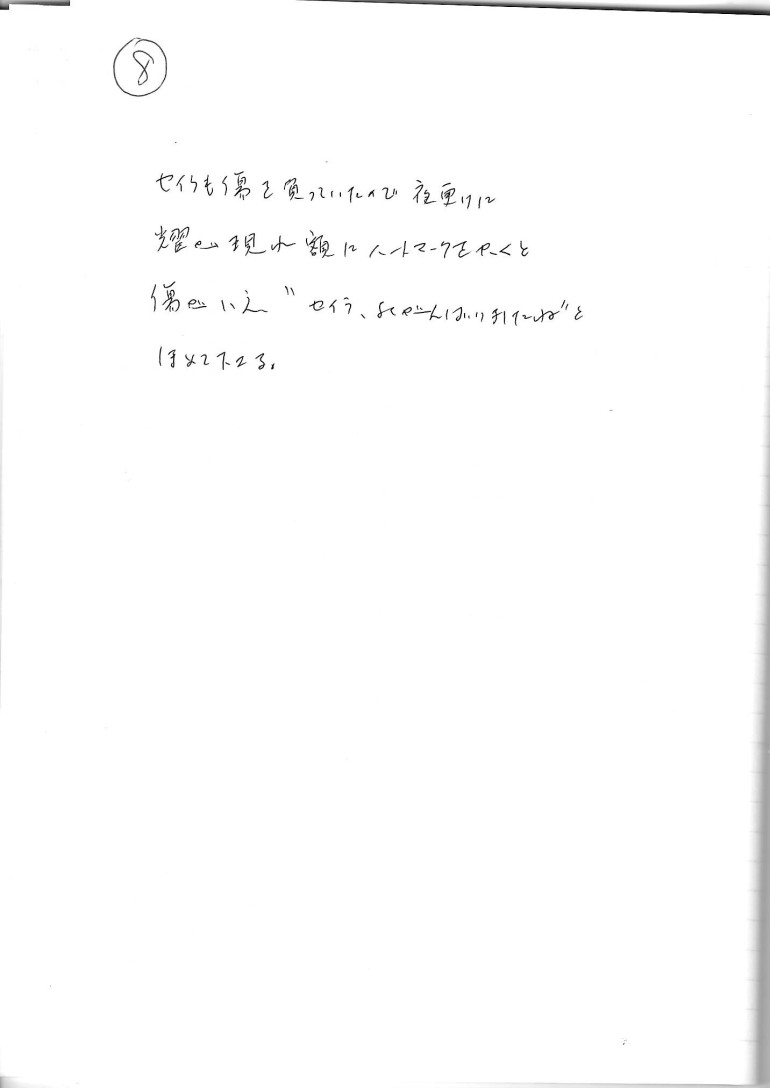 ⑧
セイラも傷を負っていたので夜更けに
耀が現れ額にハートマークをやくと
傷がいえ〝セイラ、よくがんばりましたね〟と
ほめて下さる。